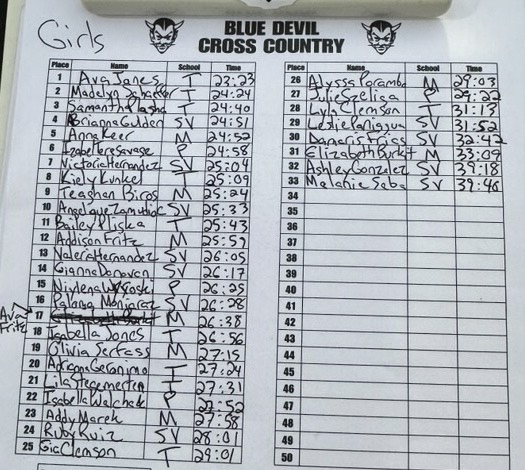 Girls
BLUE DEVIL
CROSS COUNTRY
Place Name School Time
1 Ava Janes T 23:23
2 Madelyn Schaffer T 24:24
3 Samantha Plasha T 24:40
4 Brianna Gulden SV 24:51
5 Anna Keer M 24:52
6 Izabellere Savage P 24:58
7 Victoria Hernandez SV 25:04
8 Kiely Kunkel T 25:09
9 Teaghan Biros M 25:24
10 Angelique Zamudio SV 25:33
11 Bailey Pliska T 25:43
12 Addison Fritz M 25:59
13 Valeria Hernandez SV 26:05
14 Gianna Donovan SV 26:17
15 P 26:25
16 Paloma Monjaraz SV 26:28
Ava Fritz
17 M 26:38
18 Isabella Jones T 26:56
19 Olivia M 27:15
20 Adriana Geranimo T 27:24
21 Lila Stegemerten T 27:31
22 Isabella Walchak P 27:52
23 Addy Marek M 27:58
24 Ruby Ruiz SV 28:01
25 Gia Clemson T 29:01
Place Name School Time
26 Alyssa M 29:03
27 Julie Szeliga P 29:22
28 Clemson T 31:13
29 Leslie Paniagua SV 31:52
30 SV 32:42
31 Elizabeth Burkit M 33:09
32 Ashley Gonzelez SV 39:18
33 Melanie Saba SV 39:46
34
35
36
37
38
39
40
41
42
43
44
45
46
47
48
49
50